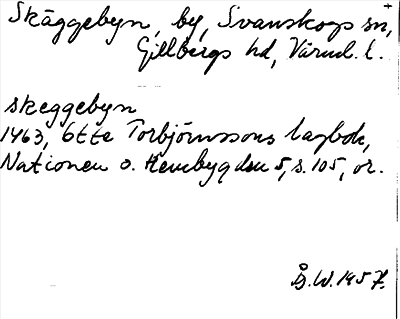 Skäggebyn, by, Svanskogs sn,
Gillbergs hd, Värml. l.
skeggebyn
1463, Otte Torbjörnssons lagbok,
Nationen o. Hembygden 5, s. 105, or.
Å.W. 1957.